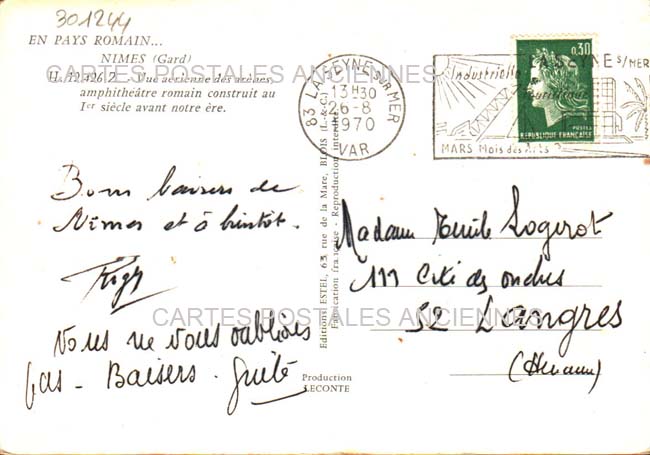 301244
EN PAYS ROMAIN...
NIMES (Gard)
Vue aérienne des arènes,
amphithéâtre romain construit au
Ier siècle avant notre ère.
CARTES POSTALES ANCIENNES
83 LA SEYNE SUR MER
13H30
26-8
1970
VAR
LA SEYNE S/MER
Industrielle
Touristique
MARS Mois des Arts
0,30
POSTES
REPUBLIQUE FRANÇAISE
Bons baisers de
Nîmes et à bientôt.
Vous ne vous oublions
pas - Baisers - Guite
Editions ESTEL, 63, rue de la Mare, BLOIS (L.-&-C.)
Fabrication française - Reproduction interdite
Production
LECONTE
Madame Emile Logerot
111 Cité des ondes
52 Langres
(Hte Marne)
CARTES POSTALES ANCIENNES